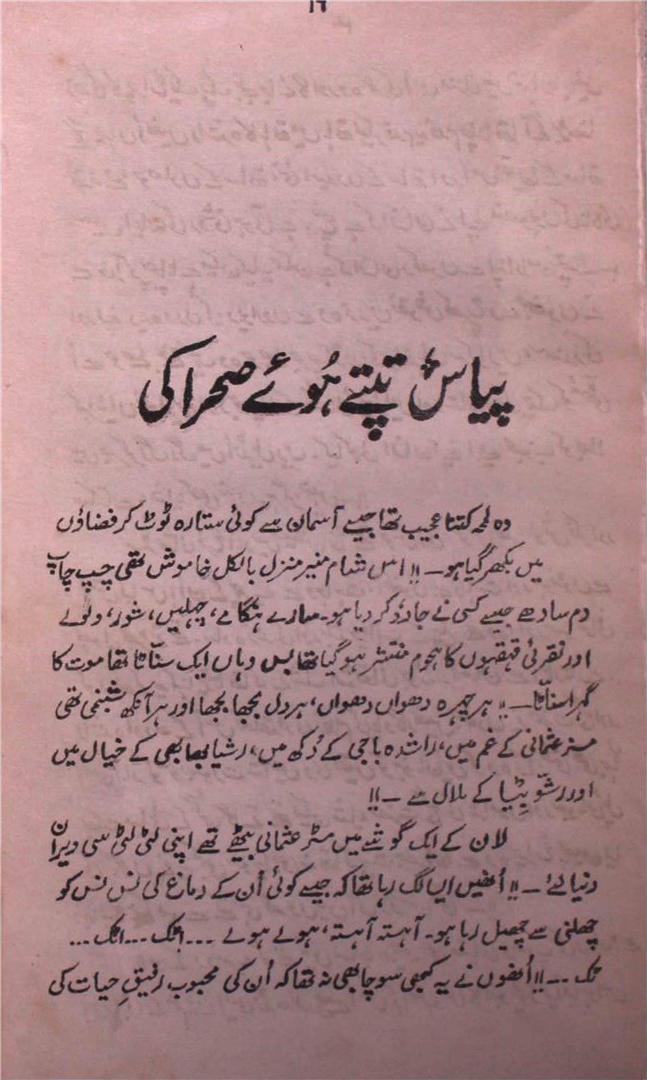 ۱۶
پیاس تپتے ہوئے صحرا کی
وہ لمحہ کتنا عجیب تھا جیسے آسمان سے کوئی ستارہ ٹوٹ کر فضاؤں
میں بکھر گیا ہو۔ ــ !! اس شام منیر منزل بالکل خاموش تھی چپ چاپ
دم سادھے جیسے کسی نے جادو کر دیا ہو۔ سارے ہنگامے، چہلیں، شور، ولولے
اور نقرئی قہقہوں کا ہجوم منتشر ہو گیا تھا بس وہاں ایک سنّاٹا تھا موت کا
گہرا سنّاٹا ــ !! ہر چہرہ دھواں دھواں، ہر دل بجھا بجھا اور ہر آنکھ شبنمی تھی
مسز عثمانی کے غم میں، راشدہ باجی کے دُکھ میں، رشیا بھابھی کے خیال میں
اور رشّو بِٹیا کے ملال سے ــ !!
لان کے ایک گوشے میں مسٹر عثمانی بیٹھے تھے اپنی لٹی لٹی سی ویران
دنیا لئے ــ !! اُنھیں ایسا لگ رہا تھا کہ جیسے کوئی اُن کے دماغ کی نس نس کو
چھلنی سے چھیل رہا ہو۔ آہستہ آہستہ، ہولے ہولے ... ٹک ... ٹک ...
ٹک ... !! اُنھوں نے یہ کبھی سوچا بھی نہ تھا کہ اُن کی محبوب رفیقِ حیات کی